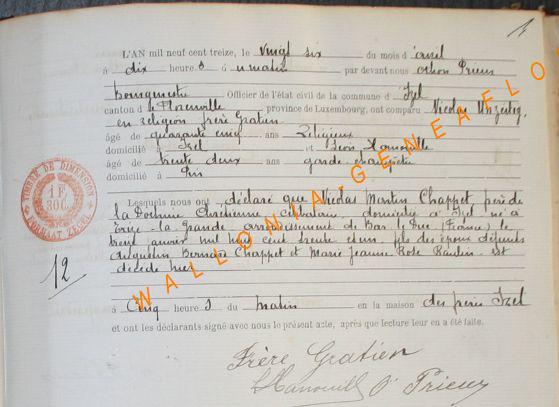 L'AN mil neuf cent treize, le vingt six du mois d'avril
à dix heures du matin par devant nous Othon Prieur
bourgmestre Officier de l'état civil de la commune d' Izel
canton d e Florenville province de Luxembourg, ont comparu Nicolas
en religion frère Gratien
âgé de quarante cinq ans Religieux
domicilié à Izel et Léon Hanouille
âgé de trente deux ans garde champêtre
domicilié à Izel
Lesquels nous ont déclaré que Nicolas Martin Chappet, père de
la Doctrine Chrétienne, célibataire, domicilié à Izel né à
la grande arrondissement de Bar le Duc (France) le
treize janvier mil huit cent trente et un, fils des époux défunts
Augustin Bernard Chappet et Marie Jeanne Rose Raulin est
décédé hier
à Cinq heures du matin en la maison des frères Izel
et ont les déclarants signé avec nous le présent acte, après que lecture leur en a été faite.
Frère Gratien
LHanouille O Prieur
12
TIMBRE DE DIMENSION
1 F
30C
FORMAAT ZEGEL
WALLONIA.GENEAFLO